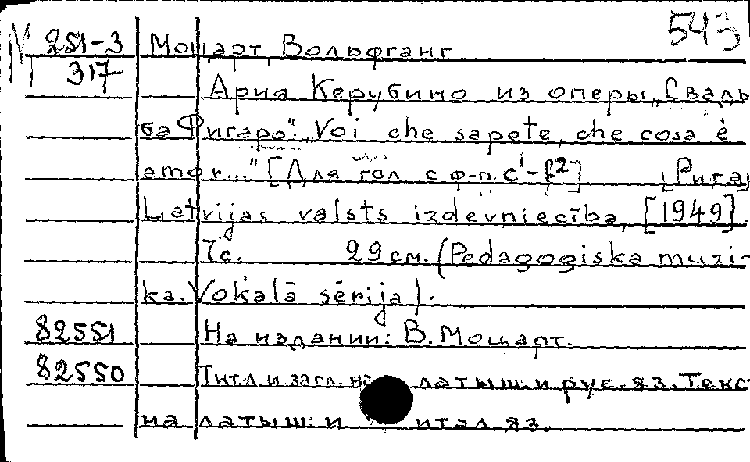 543
М 251-3 Моцарт, Вольфганг
317 Ария Керубино из оперы „Свадь
ба Фигаро". „Voi che sapete, che cosa è
amor..." [Для гол. с ф-п. c¹-f²] [Рига]
Latvijas valsts izdevniecība, [1949].
7с. 29 см. (Pedagogiska muzi-
ka. Vokalā sērija).
82551 На издании: В. Моцарт.
82550 Титл. и загл. на латыш. и рус. яз. Текс
на латыш. и итал. яз.